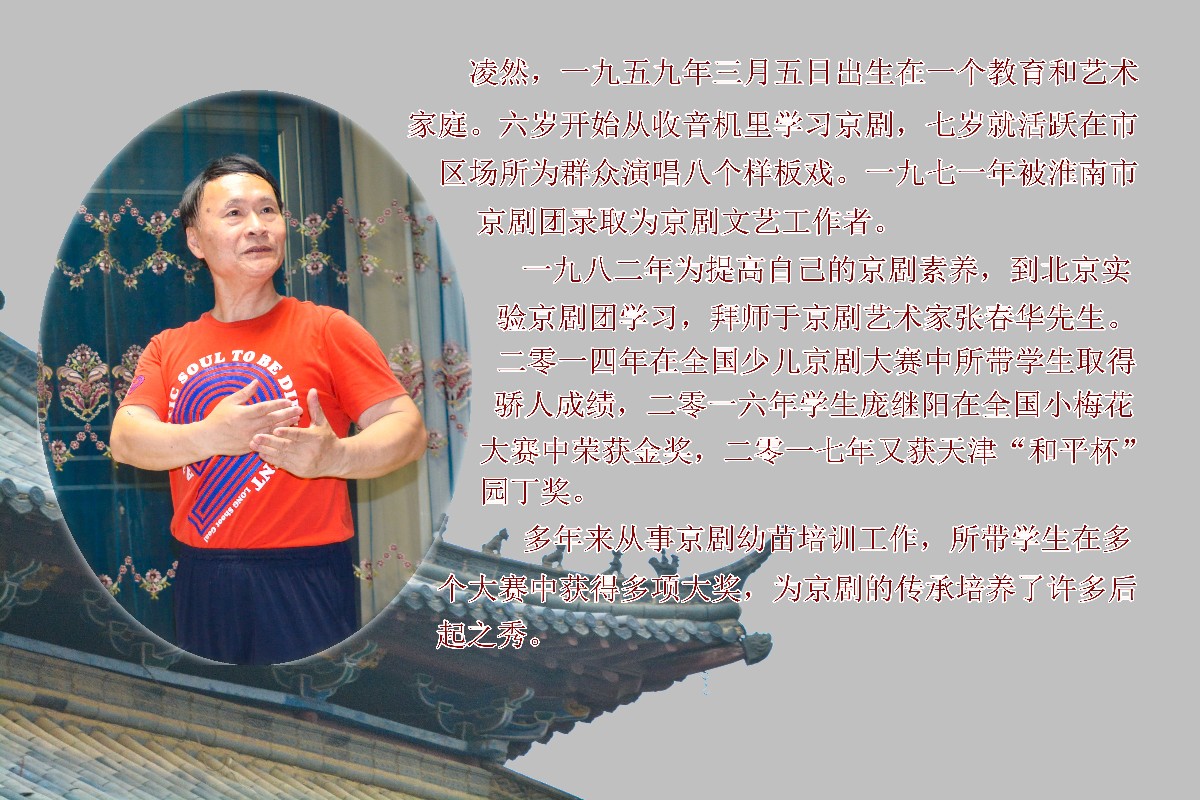 凌然，一九五九年三月五日出生在一个教育和艺术
家庭。六岁开始从收音机里学习京剧，七岁就活跃在市
区场所为群众演唱八个样板戏。一九七一年被淮南市
京剧团录取为京剧文艺工作者。
一九八二年为提高自己的京剧素养，到北京实
验京剧团学习，拜师于京剧艺术家张春华先生。
二零一四年在全国少儿京剧大赛中所带学生取得
骄人成绩，二零一六年学生庞继阳在全国小梅花
大赛中荣获金奖，二零一七年又获天津“和平杯”
园丁奖。
多年来从事京剧幼苗培训工作，所带学生在多
个大赛中获得多项大奖，为京剧的传承培养了许多后
起之秀。
SOUL TO BE DI
NT
LONG Shoot Goal